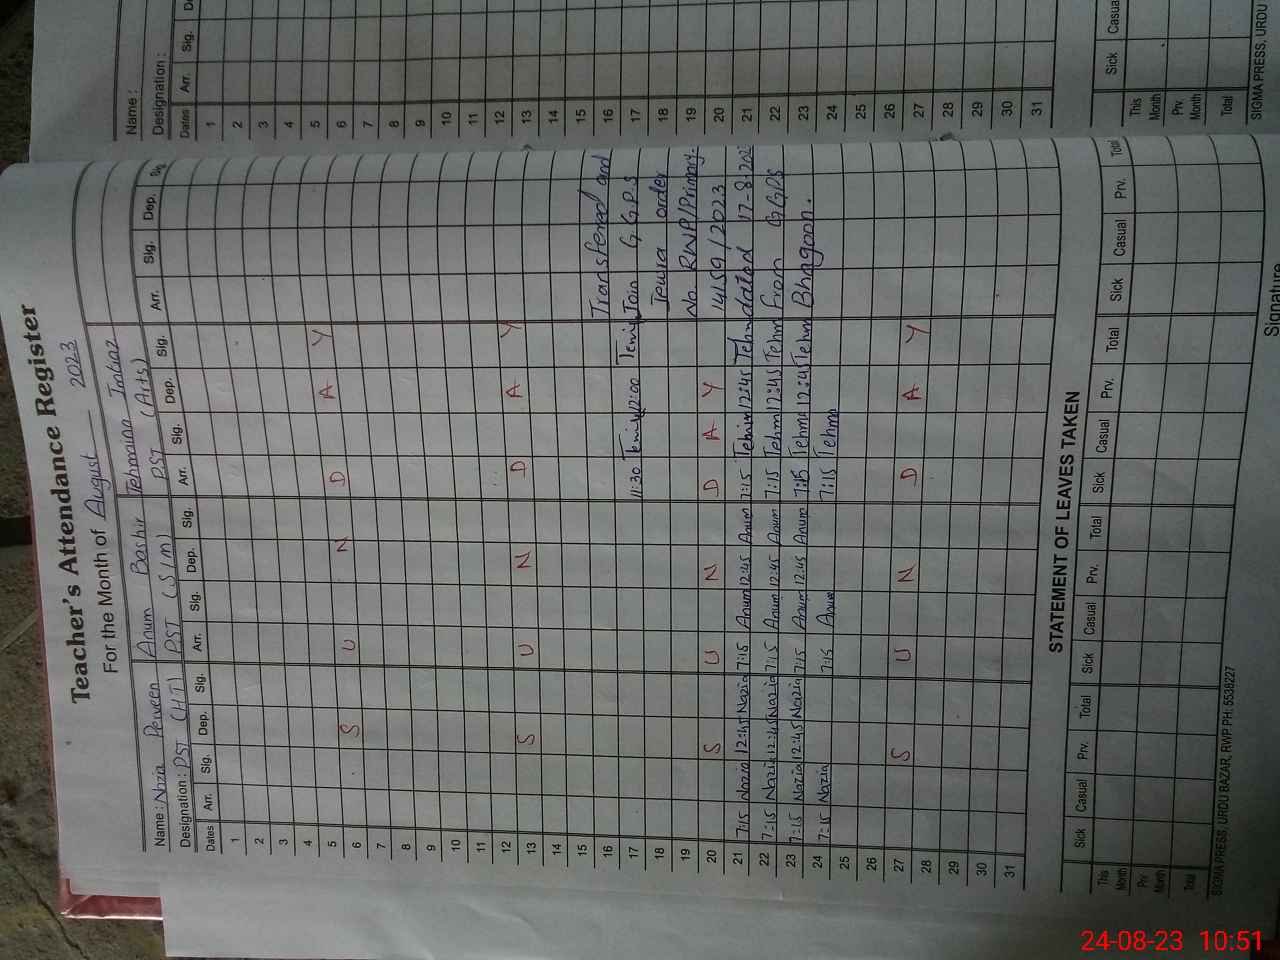 Teacher's Attendance Register
For the Month of August 2023
Name : Nazia Perveen Anum Bashir Tehmaina Imtiaz
Designation : PST (HT) PST (S/M) PST (Arts)
Dates Arr. Sig. Dep. Sig. Arr. Sig. Dep. Sig. Arr. Sig. Dep. Sig. Arr. Sig. Dep. Sig.
1
2
3
4
5
6 S U N D A Y
7
8
9
10
11
12
13 S U N D A Y
14
15
16 Transferred and
17 11:30 12:00 Join G.G.P.S
18 order
19 No. RWP/Primary.
20 S U N D A Y 14159/2023
21 7:15 Nazia 12:45 Nazia 7:15 Anum 12:45 Anum 7:15 Tehm 12:45 Tehm dated 17-8-202
22 7:15 Nazia 12:45 Nazia 7:15 Anum 12:45 Anum 7:15 Tehm 12:45 Tehm From GGPS
23 7:15 Nazia 12:45 Nazia 7:15 Anum 12:45 Anum 7:15 Tehm 12:45 Tehm Bhagoon.
24 7:15 Nazia 7:15 Anum 7:15 Tehma
25
26
27 S U N D A Y
28
29
30
31
STATEMENT OF LEAVES TAKEN
Sick Casual Prv. Total Sick Casual Prv. Total Sick Casual Prv. Total Sick Casual Prv. Total
This Month
Prv Month
Total
SIGMA PRESS, URDU BAZAR, RWP PH: 5538227
Signature
Name :
Designation :
Dates Arr. Sig.
1
2
3
4
5
6
7
8
9
10
11
12
13
14
15
16
17
18
19
20
21
22
23
24
25
26
27
28
29
30
31
Sick Casua
This Month
Prv. Month
Total
SIGMA PRESS, URDU
24-08-23 10:51